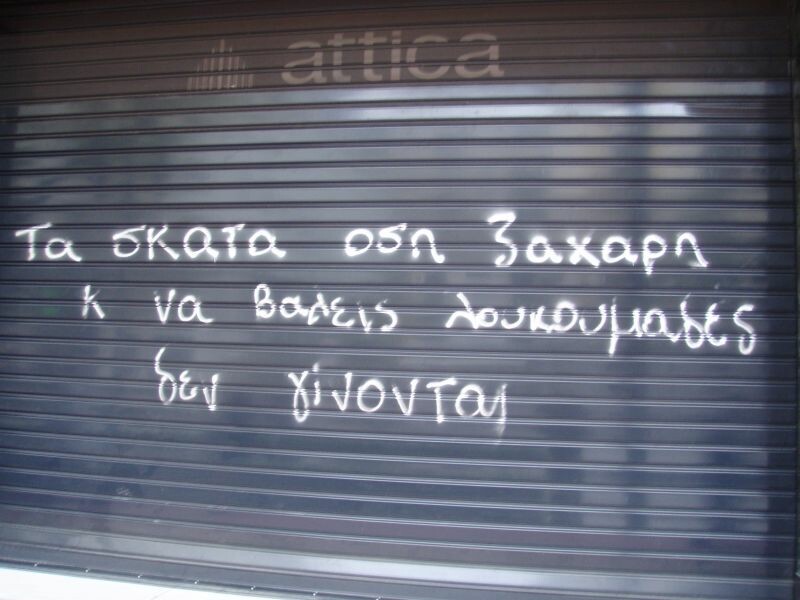 attica
Τα σκατα οση ζαχαρη
κ να βαλεις λουκουμαδες
δεν γίνονται